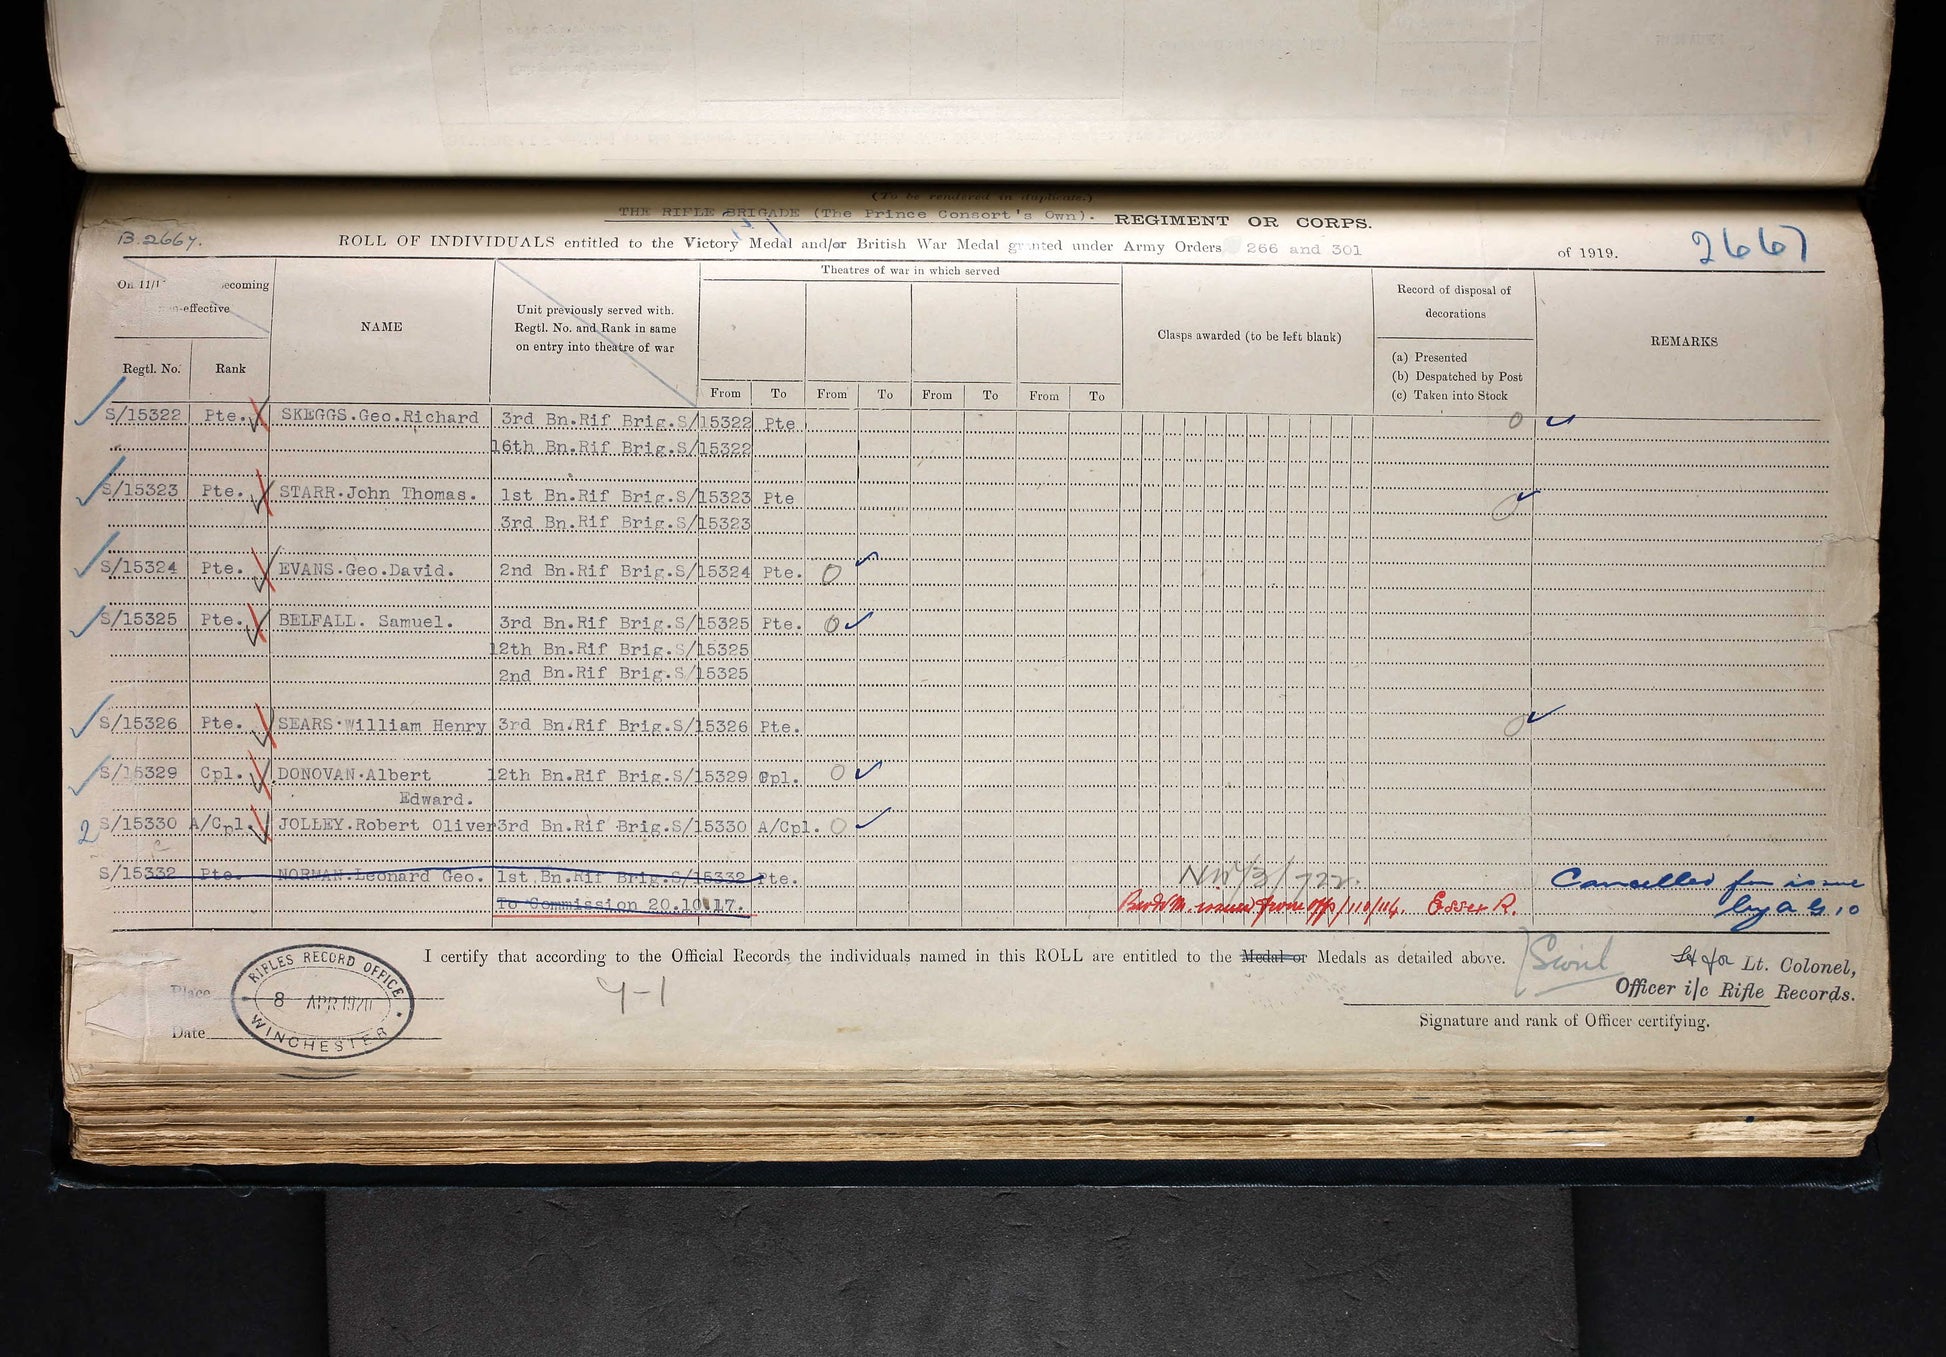 (To be rendered in duplicate.)
THE RIFLE BRIGADE (The Prince Consort's Own). REGIMENT OR CORPS.
B.2667.
ROLL OF INDIVIDUALS entitled to the Victory Medal and/or British War Medal granted under Army Orders 266 and 301 of 1919.
2667
On 11/1 ecoming
-effective
Regtl. No. Rank
NAME
Unit previously served with.
Regtl. No. and Rank in same
on entry into theatre of war
Theatres of war in which served
From To From To From To From To
Clasps awarded (to be left blank)
Record of disposal of
decorations
(a) Presented
(b) Despatched by Post
(c) Taken into Stock
REMARKS
S/15322 Pte. SKEGGS.Geo.Richard 3rd Bn.Rif Brig.S/15322 Pte
16th Bn.Rif Brig.S/15322
S/15323 Pte. STARR.John Thomas. 1st Bn.Rif Brig.S/15323 Pte
3rd Bn.Rif Brig.S/15323
S/15324 Pte. EVANS.Geo.David. 2nd Bn.Rif Brig.S/15324 Pte. O
S/15325 Pte. BELFALL. Samuel. 3rd Bn.Rif Brig.S/15325 Pte. O
12th Bn.Rif Brig.S/15325
2nd Bn.Rif Brig.S/15325
S/15326 Pte. SEARS.William Henry 3rd Bn.Rif Brig.S/15326 Pte.
S/15329 Cpl. DONOVAN.Albert 12th Bn.Rif Brig.S/15329 Cpl. O
Edward.
2 S/15330 A/Cpl. JOLLEY.Robert Oliver 3rd Bn.Rif Brig.S/15330 A/Cpl. O
S/15332 Pte. NORMAN.Leonard Geo. 1st Bn.Rif Brig.S/15332 Pte. NW/3/722. Cancelled for issue
To Commission 20.10.17. issued from Off/110/114. Essex R. by A G 10
I certify that according to the Official Records the individuals named in this ROLL are entitled to the Medal or Medals as detailed above.
Lt for Lt. Colonel,
Officer i/c Rifle Records.
Signature and rank of Officer certifying.
Place
Date
RIFLES RECORD OFFICE
8 APR 1920
WINCHESTER